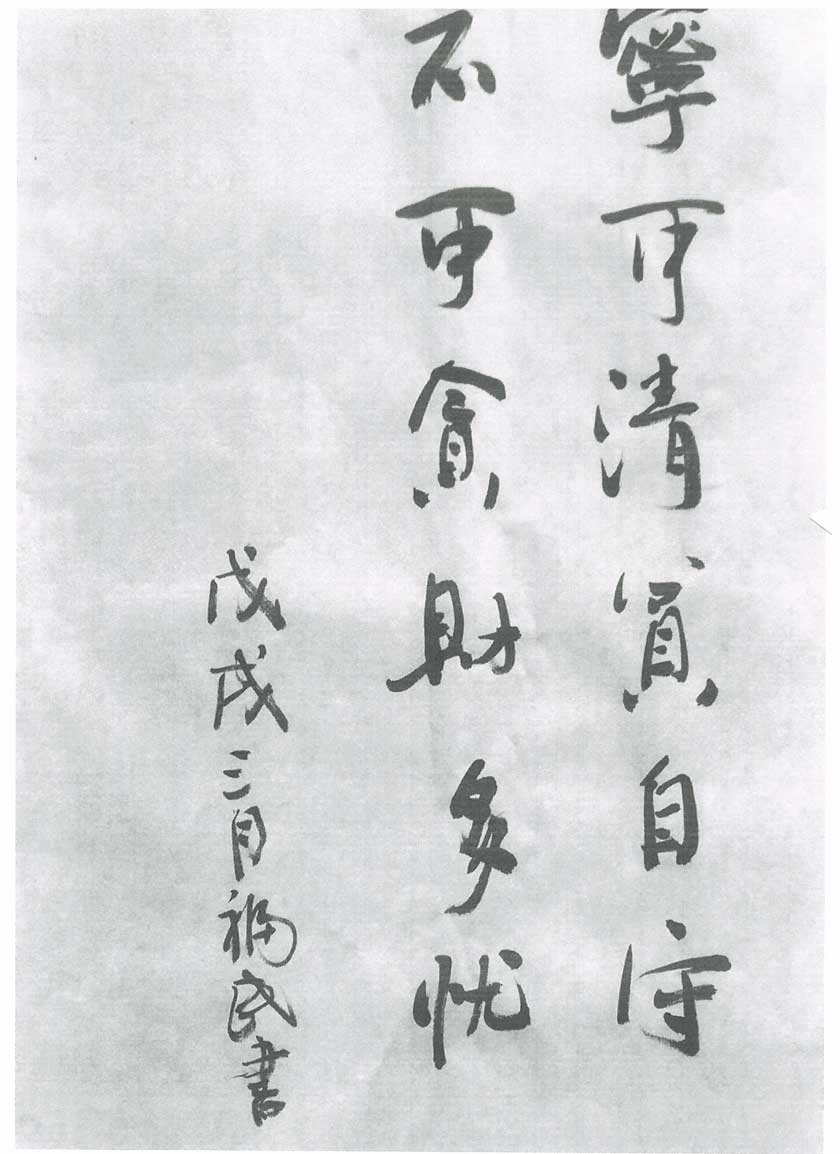 寧可清貧自守
不可貪財多忧
戊戌三月福民書